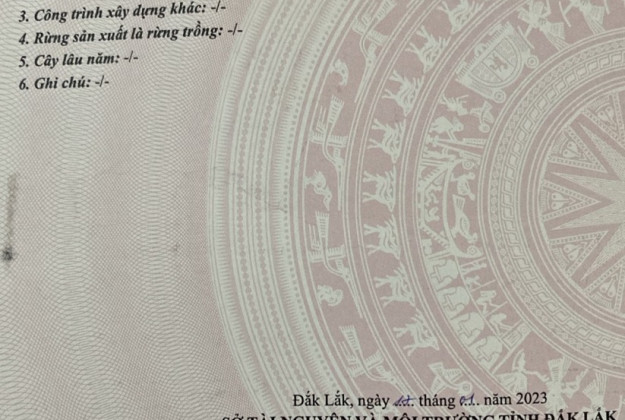 3. Công trình xây dựng khác: -/-
4. Rừng sản xuất là rừng trồng: -/-
5. Cây lâu năm: -/-
6. Ghi chú: -/-
Đắk Lắk, ngày tháng 01. năm 2023
SỞ TÀI NGUYÊN VÀ MÔI TRƯỜNG TỈNH ĐẮK LẮK